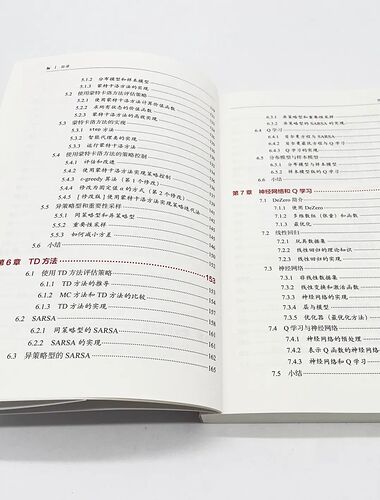 目录
5.1.2 分布模型和样本模型
5.1.3 蒙特卡洛方法的实现
5.2 使用蒙特卡洛方法评估策略
5.2.1 使用蒙特卡洛方法计算价值函数
5.2.2 求所有状态的价值函数
5.2.3 蒙特卡洛方法的高效实现
5.3 蒙特卡洛方法的实现
5.3.1 step方法
5.3.2 智能代理类的实现
5.3.3 运行蒙特卡洛方法
5.4 使用蒙特卡洛方法的策略控制
5.4.1 评估和改进
5.4.2 使用蒙特卡洛方法实现策略控制
5.4.3 ε-greedy算法(第1个修改)
5.4.4 修改为固定值α的方式(第2个修改)
5.4.5 [修改版]使用蒙特卡洛方法实现策略迭代法
5.5 异策略型和重要性采样
5.5.1 同策略型和异策略型
5.5.2 重要性采样
5.5.3 如何减小方差
5.6 小结
第6章 TD方法 153
6.1 使用TD方法评估策略 153
6.1.1 TD方法的推导 155
6.1.2 MC方法和TD方法的比较 156
6.1.3 TD方法的实现 158
6.2 SARSA 160
6.2.1 同策略型的SARSA 160
6.2.2 SARSA的实现 162
6.3 异策略型的SARSA 165
6.3.1 异策略和重要性采样
6.3.2 异策略型的SARSA的实现
6.4 Q学习
6.4.1 贝尔曼方程与SARSA
6.4.2 贝尔曼最优方程与Q学习
6.4.3 Q学习的实现
6.5 分布模型与样本模型
6.5.1 分布模型与样本模型
6.5.2 样本模型版的Q学习
6.6 小结
第7章 神经网络和Q学习
7.1 DeZero简介
7.1.1 使用DeZero
7.1.2 多维数组(张量)和函数
7.1.3 最优化
7.2 线性回归
7.2.1 玩具数据集
7.2.2 线性回归的理论知识
7.2.3 线性回归的实现
7.3 神经网络
7.3.1 非线性数据集
7.3.2 线性变换和激活函数
7.3.3 神经网络的实现
7.3.4 层与模型
7.3.5 优化器(最优化方法)
7.4 Q学习与神经网络
7.4.1 神经网络的预处理
7.4.2 表示Q函数的神经网络
7.4.3 神经网络和Q学习
7.5 小结